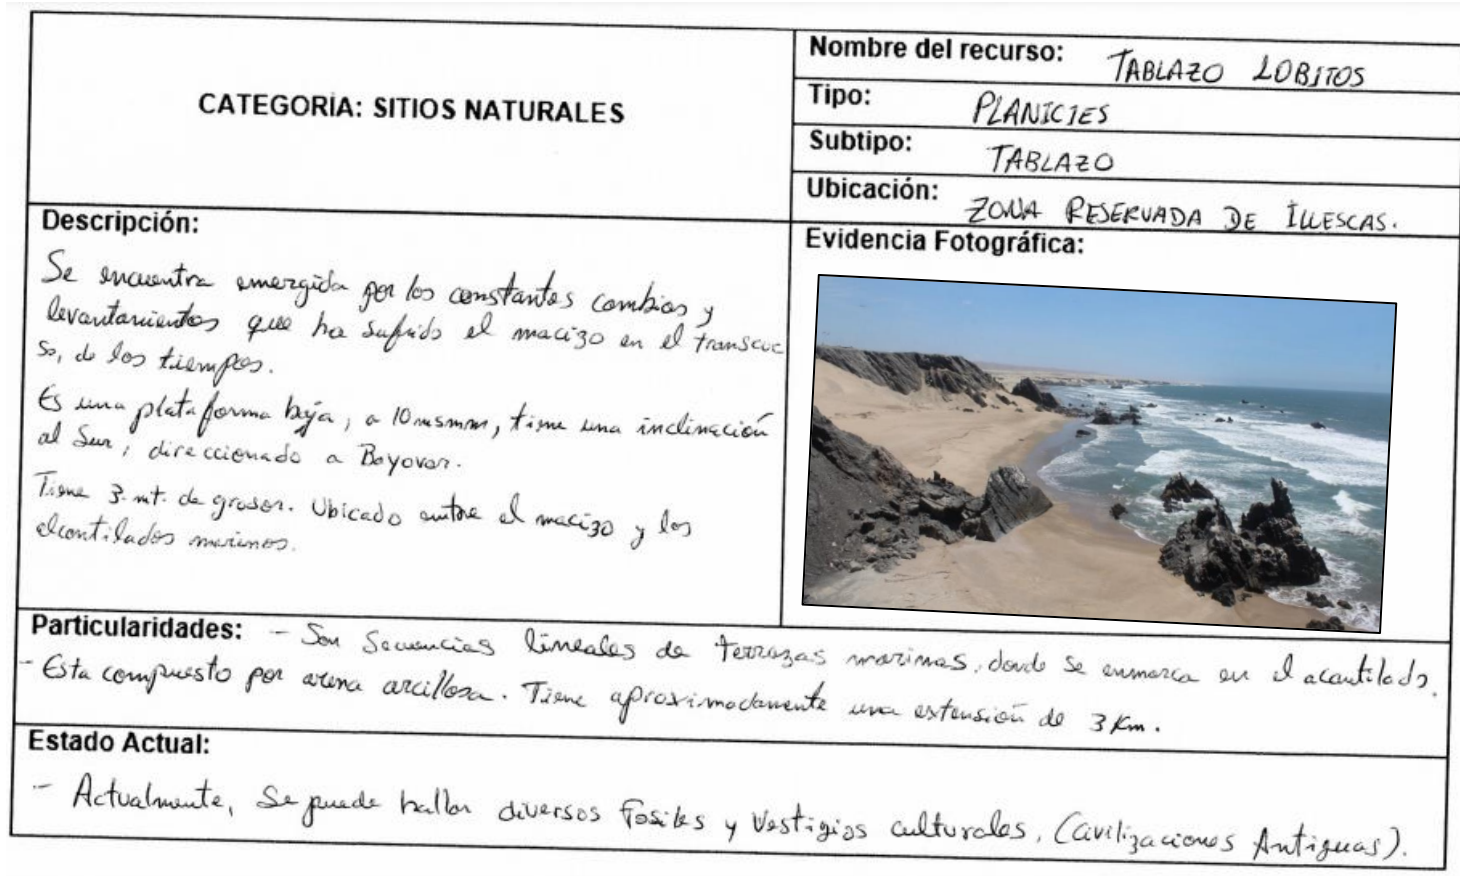 CATEGORÍA: SITIOS NATURALES
Nombre del recurso: TABLAZO LOBITOS
Tipo: PLANICIES
Subtipo: TABLAZO
Ubicación: ZONA RESERVADA DE ILLESCAS.
Descripción:
Se encuentra emergida por los constantes cambios y
levantamientos que ha sufrido el macizo en el transcur
so, de los tiempos.
Es una plataforma baja, a 10 msmm, tiene una inclinación
al Sur, direccionado a Bayovar.
Tiene 3 mt. de grosor. Ubicado entre el macizo y los
alcantilados marinos.
Evidencia Fotográfica:
Particularidades: - Son Secuencias lineales de terrazas marinas, donde se enmarca en el acantilado.
- Esta compuesto por arena arcillosa. Tiene aproximadamente una extensión de 3 Km.
Estado Actual:
- Actualmente, Se puede hallar diversos Fosiles y Vestigios culturales, (Civilizaciones Antiguas).